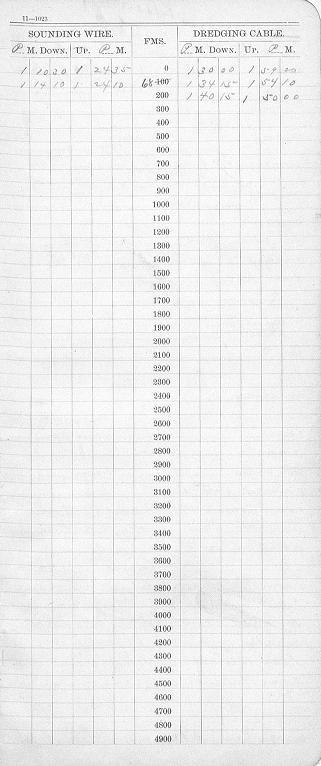 11—1023
SOUNDING WIRE. FMS. DREDGING CABLE.
P. M. DOWN. UP. P. M. P. M. DOWN. UP. P. M.
1 10 30 1 24 35 0 1 30 00 1 59 20
1 14 10 1 24 10 68 100 1 34 15 1 54 10
200 1 40 15 1 50 00
300
400
500
600
700
800
900
1000
1100
1200
1300
1400
1500
1600
1700
1800
1900
2000
2100
2200
2300
2400
2500
2600
2700
2800
2900
3000
3100
3200
3300
3400
3500
3600
3700
3800
3900
4000
4100
4200
4300
4400
4500
4600
4700
4800
4900